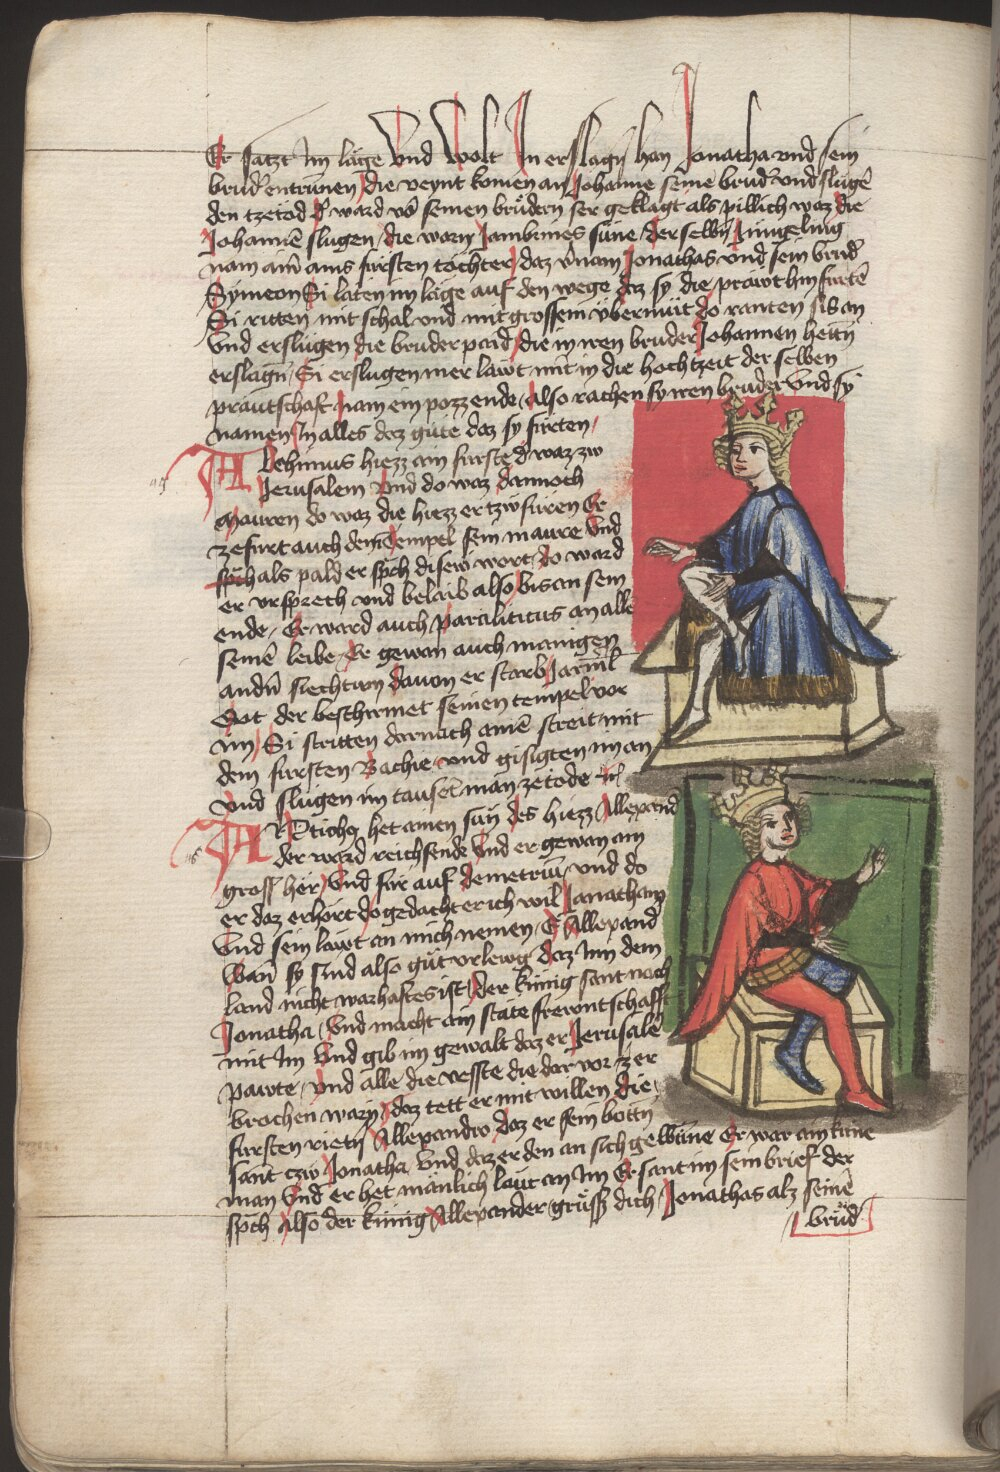 Er satzt Im läge Vnd Wolt In erslagn han Jonatha vnd sein
brud' entrunnen die veynt komen an Johanne seine brud' vnd slugē
den tzetod d' ward vō seinen brüdern ser geklagt als pillich waz die
Johannē slugen / die warn Jambrines süne / der selbn Jüngeling
nam ainē ains fürsten tochter / daz v'nam Jonathas vnd sein brud'
Symeon Si laten im läge auf den wege daz sy die prawt hin furtē
Si ritten mit schal vnd mit grossem übermüt do ranten si s an
Vnd erslugen die bruder paid / die in iren bruder Johannen hettn
erslagn / Si erslugen mer läwt mit in die hochtzeit der selben
präutschaft nam ein pozz ende / Also rachen sy iren bruder Vnd sy
namen In alles daz güte daz sy fürten /
Alchimus hiezz ain furste d' waz zw
Jerusalem Vnd do waz dannoch
Mauren do waz die hiezz er tzwfüren Er
zefurt auch dem Tempel sein maure Vnd
spch als pald er spch disew wort / do ward
er vrsprech vnd belaib also bis an sein
ende / Er ward auch paraliticus an alle
seinē leibe / Er gewan auch manigen
andn siechtum dauon er starb / Jarml
Got der beschirmet seinen tempel vor
im / Si stritten darnach ainē streit mit
dem fürsten Bachie / vnd gisigten im an
vnd slugen im tausel man ze tode
ANticho9 het ainen sun des hiezz Allexand'
der ward reichsende Vnd er gewan ain
gross her / Vnd für auf demetriū / vnd do
er daz erhort do gedacht er ich wil Janatham
Vnd sein läwt an mich nemen / E Allexand'
Wan sy sind also gut vrlewg daz Inn dem
land nicht warhaftes ist / der künig sant nach
Jonatha / Vnd macht ain state frewntschafft
mit Im Vnd gib im gewalt daz er Jerusalē
pawte / vnd alle die vesste die dar vor zer
brochen warn / daz tett er mit willen die
fursten rietn Allexandro daz er sein bottn
sant czw Jonatha Vnd daz er den an sich gewüne Er war ain küne
man Vnd er het mänlich läut an Im Er sant im sein brief der
spch Also der künig Allexander grüssz dich / Jonathas alz seinē
brüd'